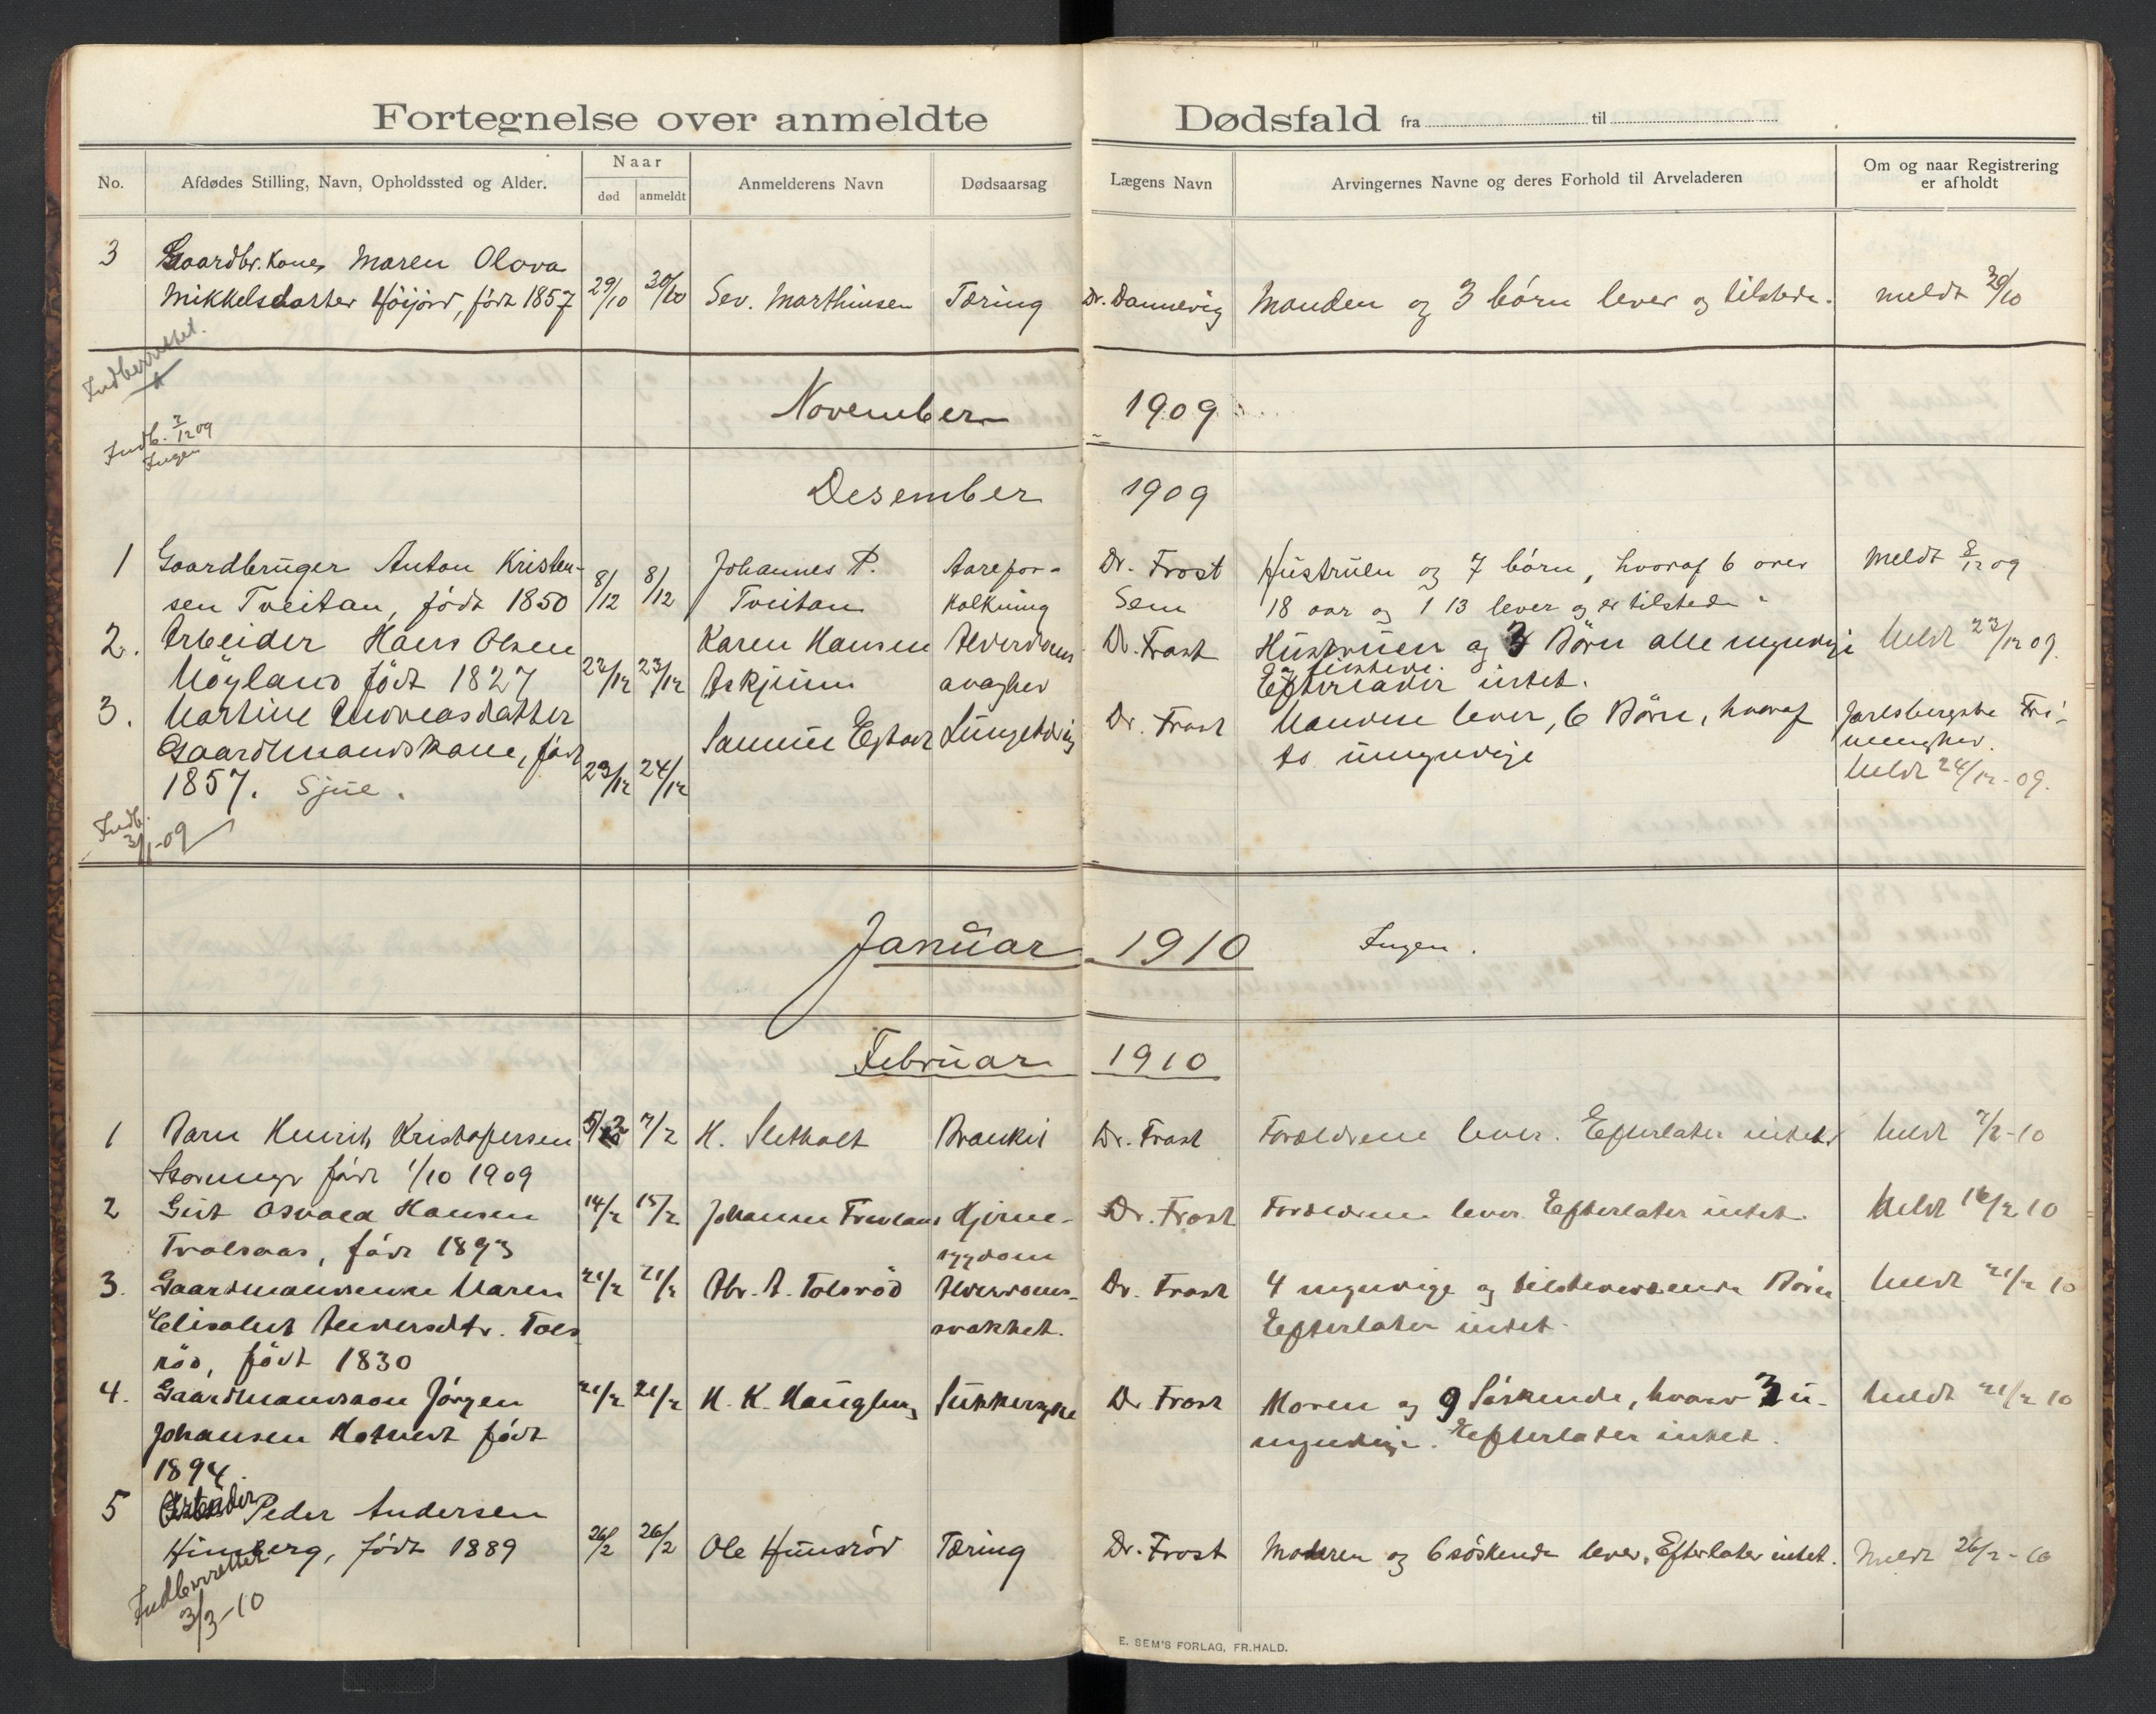 Fortegnelse over anmeldte Dødsfald fra til
No.
Afdødes Stilling, Navn, Opholdssted og Alder.
Naar
død
anmeldt
Anmelderens Navn
Dødsaarsag
Lægens Navn
Arvingernes Navne og deres Forhold til Arveladeren
Om og naar Registrering
er afholdt
3 Gaardbr. kone Maren Olova
Mikkelsdatter Höijord, födt 1857 29/10 30/10 Sev. Marthinsen Tæring Dr. Dannevig Manden og 3 börn lever og tilstede. meldt 30/10
Indberettet.
November 1909
Indb. 3/12 09
Ingen
Desember 1909
1 Gaardbruger Anton Kristen- Johannes P. Aarefor- Dr. Frost Hustruen og 7 börn, hvoraf 6 over meldt 8/12 09
sen Tveitan, födt 1850 8/12 8/12 Tveitan kalkning Sem 18 aar og 1 13 lever og er tilstede
2. Arbeider Hans Olsen Karen Hansen Alderdoms Dr. Frost Hustruen og 3 Börn alle myndige Meldt 23/12 09.
og tilstede.
Höyland födt 1827 22/12 23/12 Askjum svaghed Efterlader intet.
3. Martine Andreasdatter Samuel Dr. Frost Manden lever, 6 Börn, hvoraf Jarlsbergske
Gaardmandskone, födt to umyndige
1857. Sjue. 23/12 24/12 Meldt 24/12-09.
Indb.
3/1-09
Januar 1910 Ingen.
Februar 1910
1 Barn Henrik Kristofersen 5/2 7/2 H. Sletholt Bronkit Dr. Frost Foreldrene lever. Efterlater intet. Meldt 7/2-10
Stormyr födt 1/10 1909
2 Gut Osvald Hansen 14/2 15/2 Johannes Hjerne- Dr. Frost Foreldrene lever. Efterlater intet. Meldt 16/2 10
Tvalsaas, födt 1893 sygdom
3. Gaardmandsenke Maren 21/2 21/2 Abr. A. Tolsröd Alderdoms- Dr. Frost 4 myndige og tilstedeværende Börn Meldt 21/2 10
Elisabet Andersdtr. Tols svakhet. Efterlater intet.
röd, födt 1830
4. Gaardmandssön Jörgen 21/2 21/2 H. K. Haugberg Sukkersyke Dr Frost Moren og 9 Söskende, hvorav 3 u- Meldt 21/2 10
Johansen födt myndige. Efterlater intet.
1894.
5 Arbeider Peder Andersen
Himberg, födt 1889 26/2 26/2 Ole Hunsröd Tæring Dr. Frost Moderen og 6 söskende lever, Efterlater intet. Meldt 26/2-10
Indberettet
3/3-10
E. SEM'S FORLAG, FR.HALD.